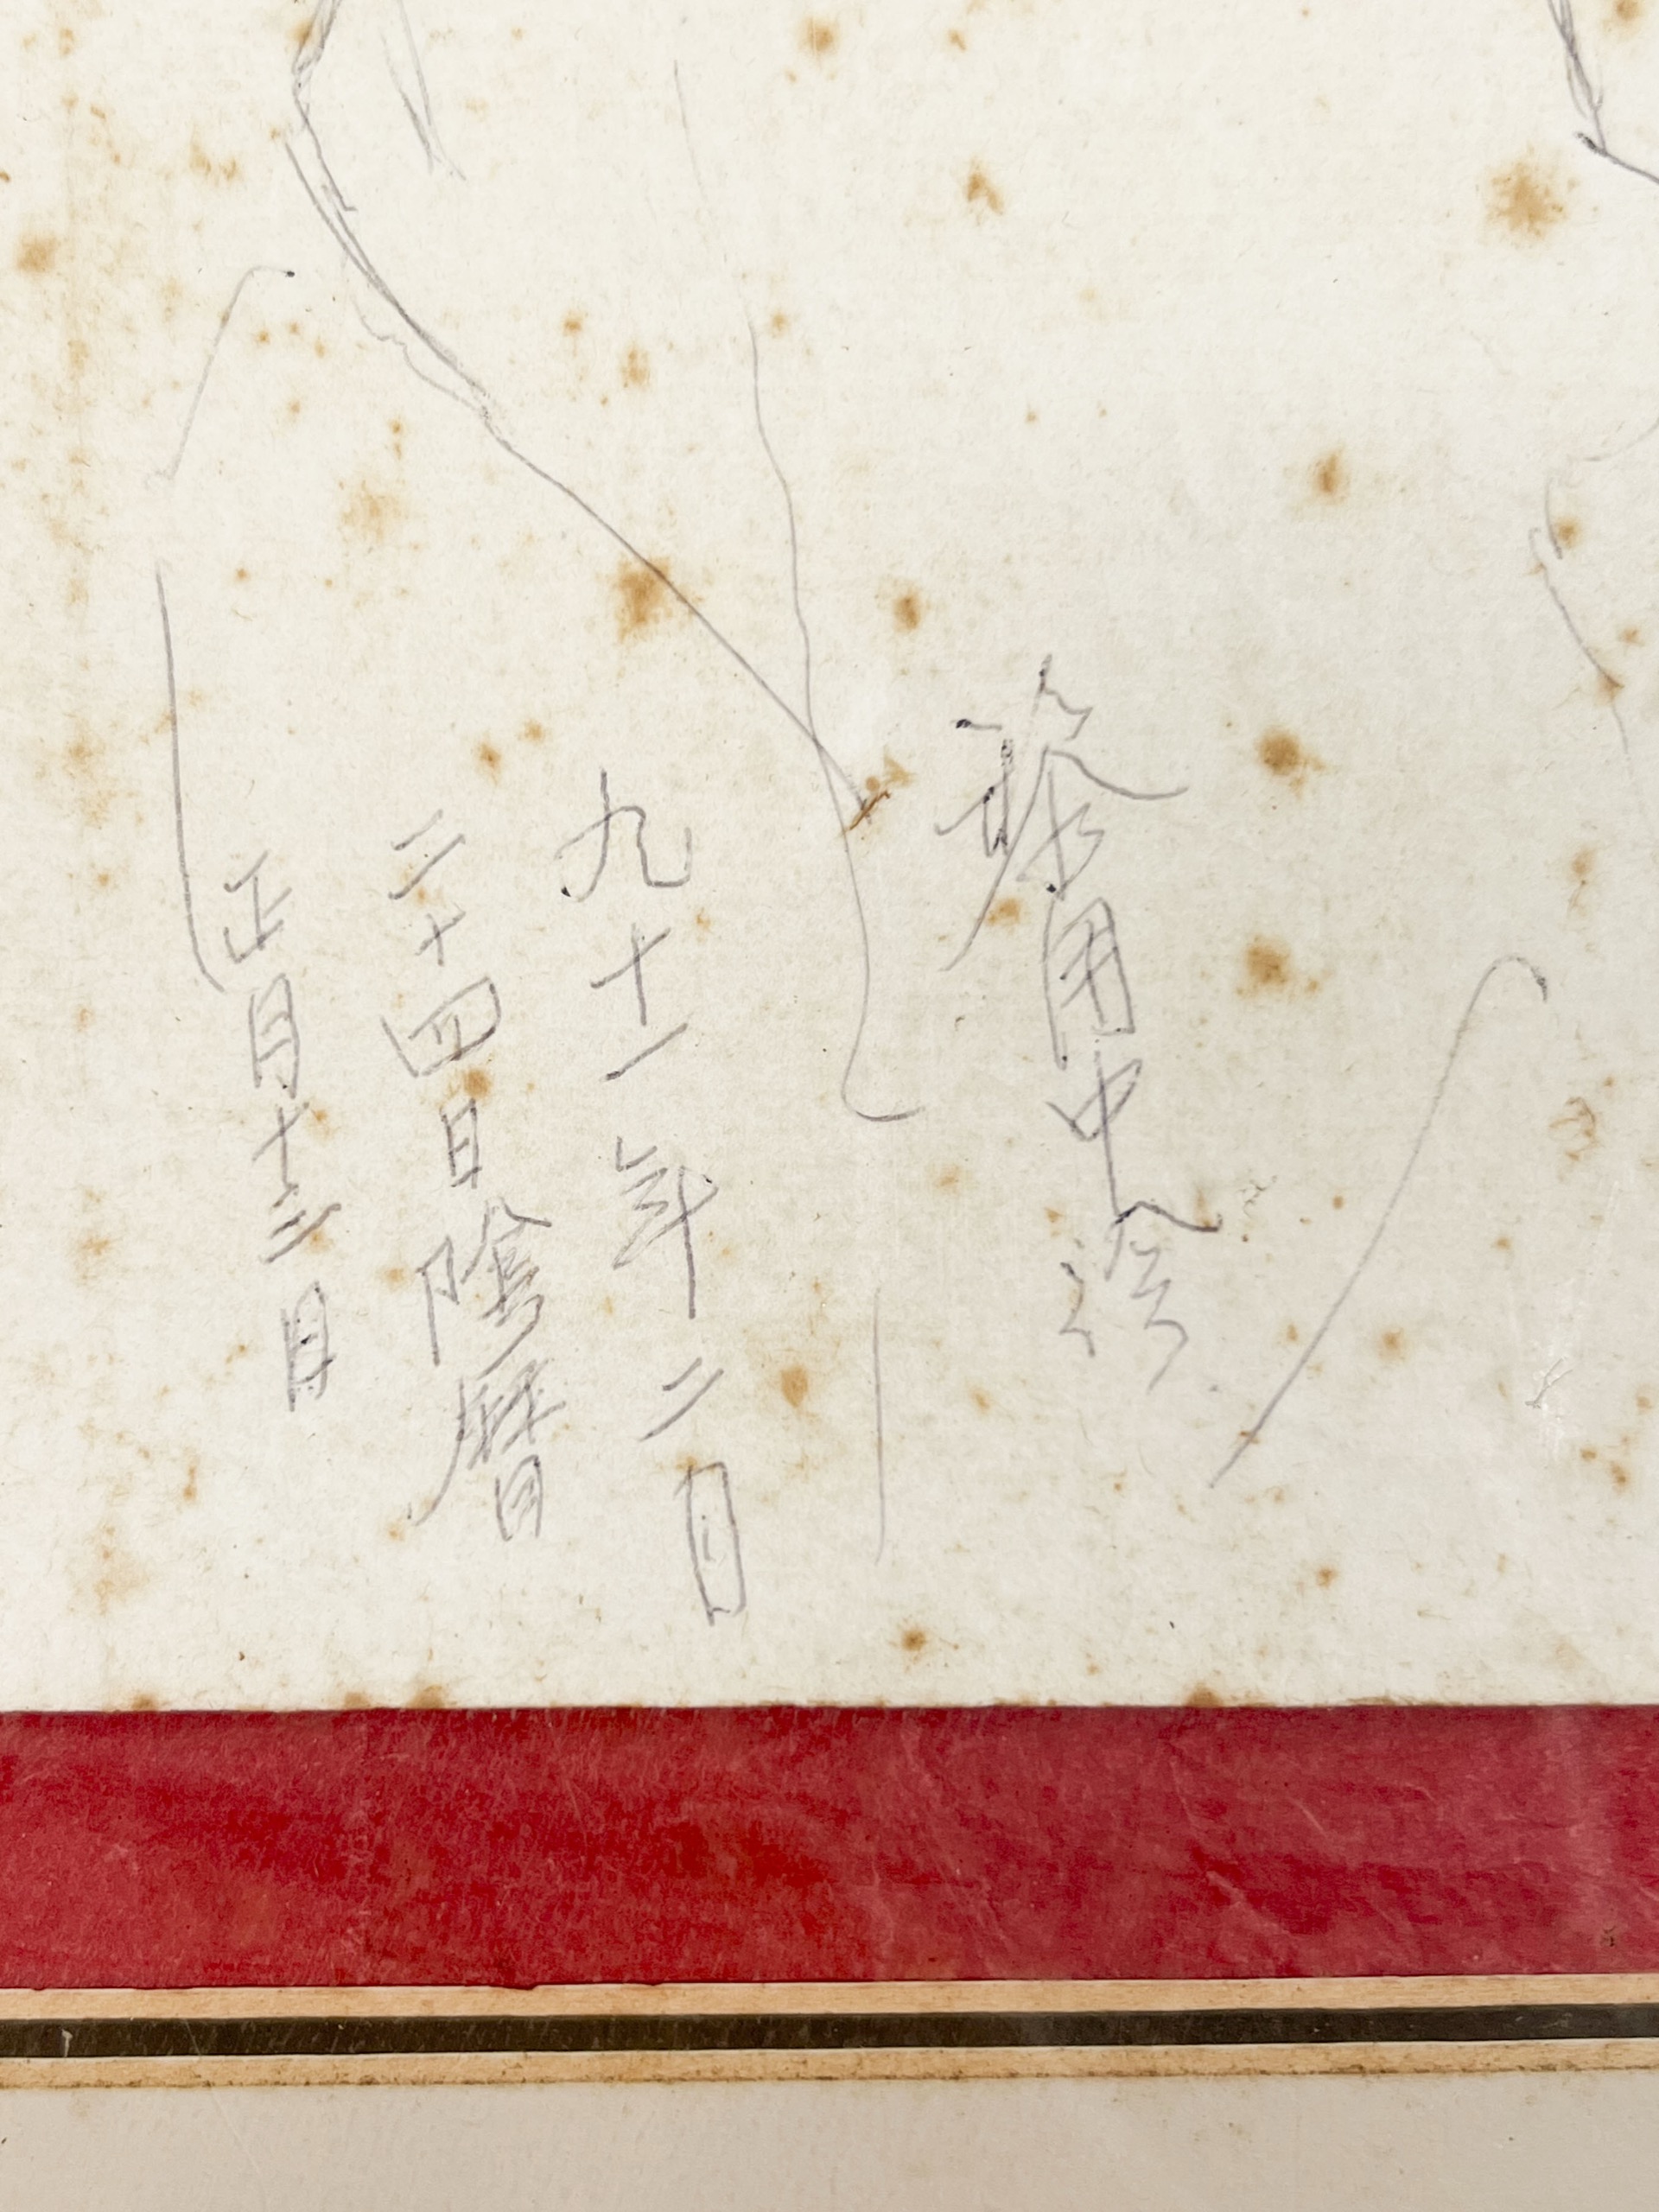 用中
九十一年二月
二十四日陰曆
正月十三日